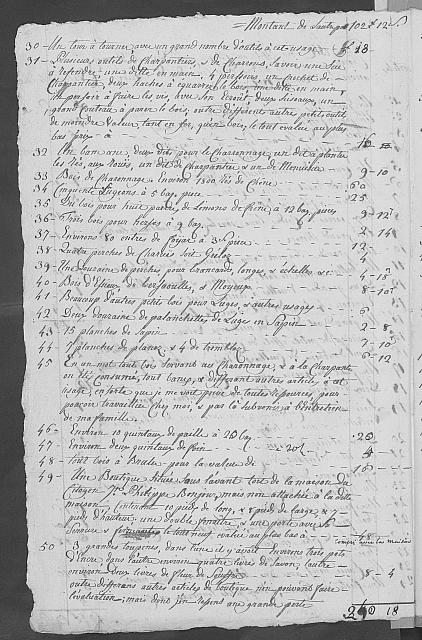 Montant de 102 # 12 s
30 - Un tour à tourner avec un grand nombre d'outils à cet usage 18
31 - Plusieurs outils de Charpentier, & de Charrons, Savoir une Scie
à refendre, une ditte en main, 4 persoirs, un crochet de
Charpentier, deux haches à equarrer le bois, une ditte en main,
un persoir à faire les avec Son deux ciseaux, un
grand couteau à parer le bois, outre différents autres petits outils
de moindre Valeur tant en fer, qu'en bois, le tout evalué au plus
bas prix à 16
32 Un banc ane, deux dits pour le Charronnage, un dit à planter
les rais, aux roues, un dit de Charpentier & un de Menuisier
33 Bois de Charonage. Environ 1800 de Chêne 9 - 10
34 Cinquante Lugeons à 5 baz. piece 50
35 Du bois pour huit paires de Limons de Chêne, à 12 baz. pieces 25
36 - Trois bois pour à 9 baz. 9 - 12
37 - Environs 80 de Foyar à 3 s piece 2 - 14
38 - Quatre perches de Charrés soit 12
39 - Une Douzaine de perches pour brancards, longes, & echelles &c. 4
40 - Bois d' de , & Moyeux 4 - 10
41 - Beaucoup d'autres petits bois pour Luges, & autres usages 8 - 10
42 Deux douzaine de palanchettes de Luges en Sapin 6
43 15 planches de Sapin 2 - 8
44 7 planches de plane, & 4 de tremble 7 - 10
45 En un mot tout bois servant au Charonnage, & à la Charpente
on été consumé, tout Camp, & différent autres articles, à cet
usage, en sorte que je me voit privé de toutes ressources pour
pouvoir travailler Chez moi, & par là subvenir à l'entretien
de ma famille. 6 - 12
46 - Environ 10 quintaux de paille à 20 baz. 20
47 Environ deux quintaux de foin à 20 baz. 4
48 - Tout bois à Bruler pour la valeur de 16
49 - Une Boutique Située Sous l'avant toit de la maison du
Citoyen Jn. Philippe Bonjour, mais non attachée à la ditte
maison. Contenant 10 pieds de long, & 8 pieds de large, & 7
pieds d'hauteur, une double fenêtre, & une porte avec Sa
Serrure & le tout neuf, évalué au plus bas à compris avec les maisons
50 3 grandes toupines, dans l'une il y avoit Environ trois pots
d'Encre, dans l'autre environ quatre livres de Savon, l'autre
environ deux livres de fleur de Souffre 8 - 4
outre différans autres articles de boutique n'en pouvant faire
l'évaluation; mais dont j'en ressend une grande perte
290 18